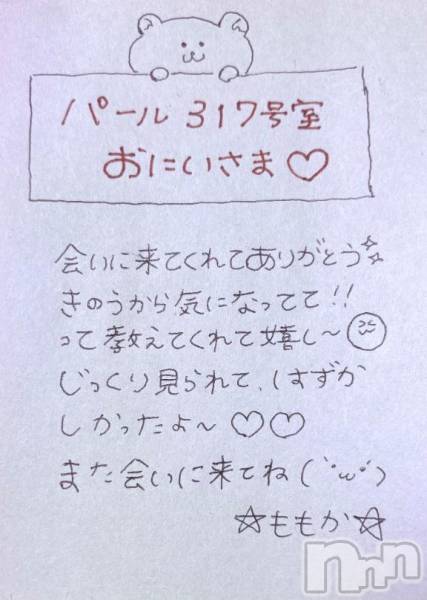 パール 317号室
おにいさま♡
会いに来てくれてありがとう☆
きのうから気になってて!!
って教えてくれて嬉し〜
じっくり見られて、はずか
しかったよ〜♡♡
また会いに来てね(´･ω･`)
☆ももか☆
nnn